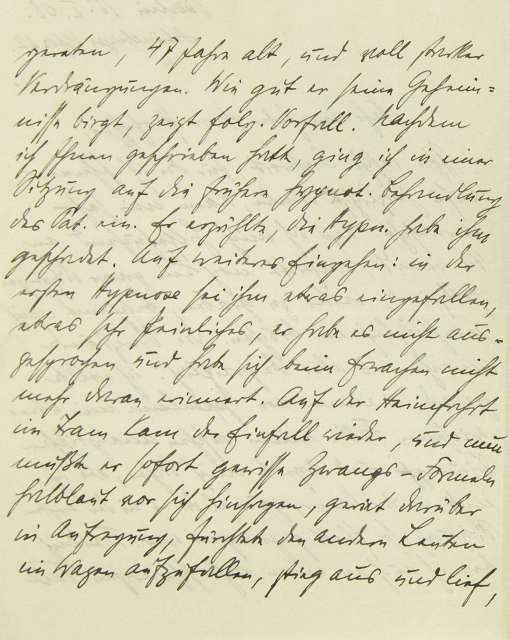 geraten, 47 Jahre alt, und voll starker
Verdrängungen. Wie gut er seine Geheim=
nisse birgt, zeigt folg. Vorfall. Nachdem
ich Ihnen geschrieben hatte, ging ich in einer
Sitzung auf die frühere hypnot. Behandlung
des Pat. ein. Er erzählte, die Hypn. habe ihm
geschadet. Auf weiteres Eingehen: in der
ersten Hypnose sei ihm etwas eingefallen,
etwas sehr Peinliches, er habe es nicht aus-
gesprochen und habe sich beim Erwachen nicht
mehr daran erinnert. Auf der Heimfahrt
im Tram kam der Einfall wieder, und nun
mußte er sofort gewisse Zwangs-Formeln
halblaut vor sich hinsagen, geriet darüber
in Aufregung, fürchtete den andern Leuten
im Wagen aufzufallen, stieg aus und lief,